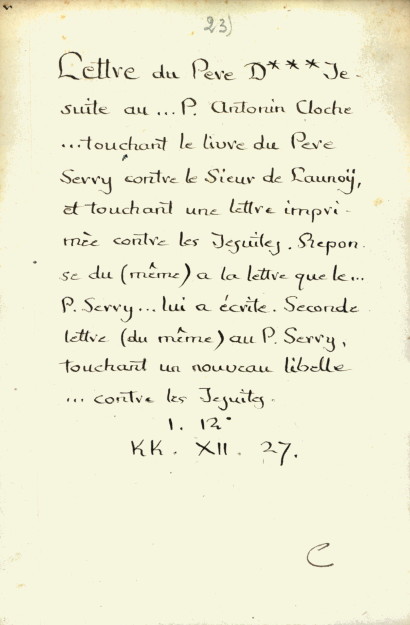 23)
Lettre du Pere D*** Je-
suite au ... P. Antonin Cloche
... touchant le livre du Pere
Serry contre le Sieur de Launoÿ,
et touchant une lettre impri-
mèe contre les Jesuites. Repon-
se du (même) a la lettre que le...
P. Serry... lui a écrite. Seconde
lettre (du même) au P. Serry,
touchant un nouveau libelle
... contre les Jesuites.
1. 12°
KK. XII. 27.
C